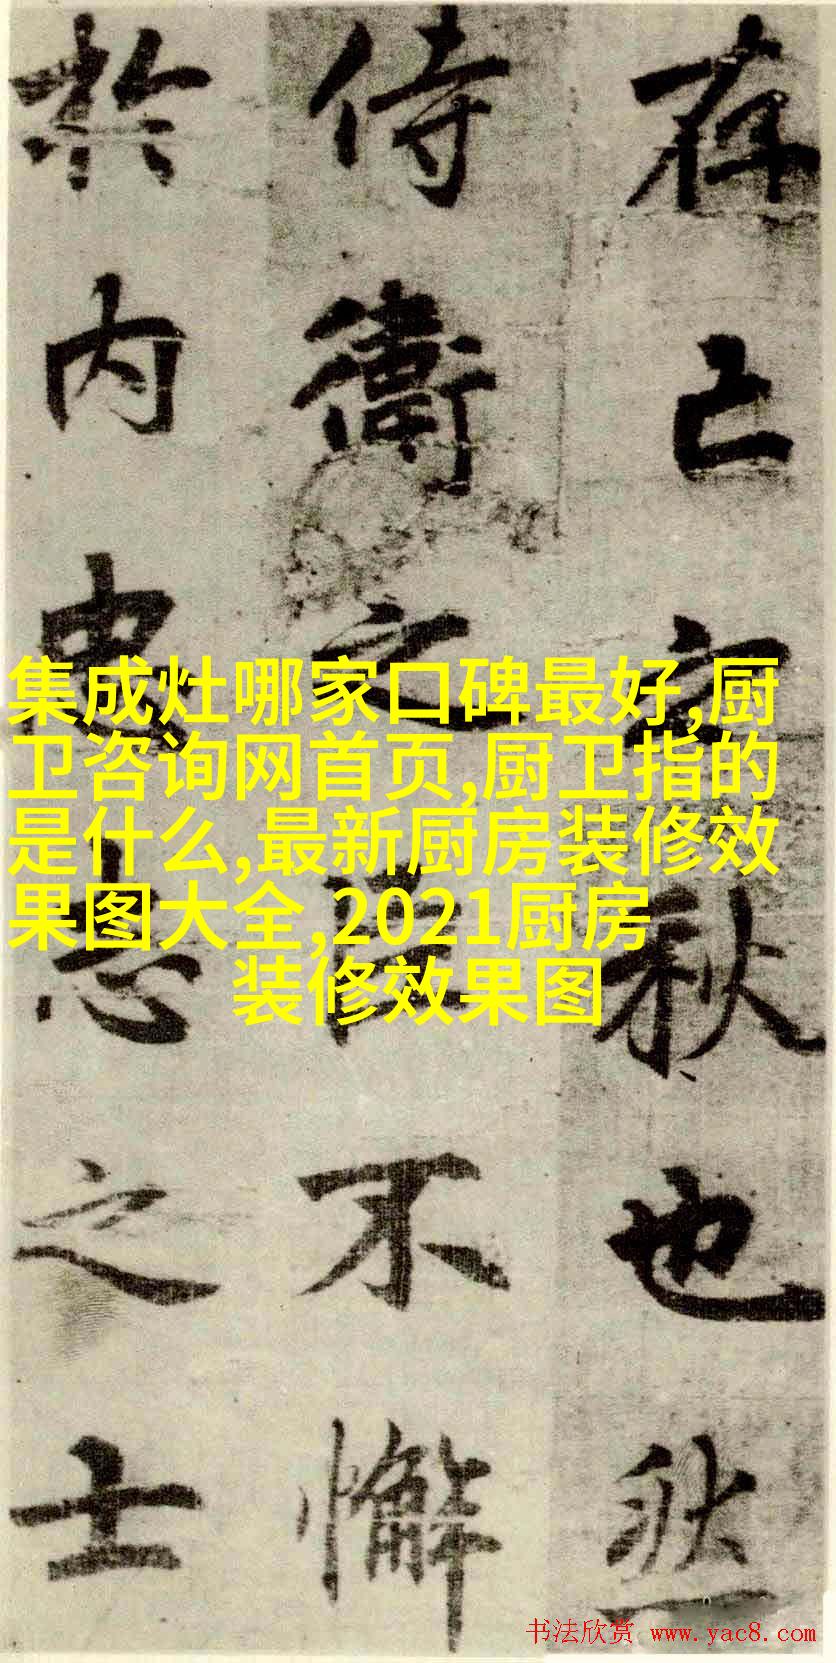 存亡之秋也然
侍衛之臣不懈
於内忠志之士
集成灶哪家口碑最好,厨
卫咨询网首页,厨卫指的
是什么,最新厨房装修效
果图大全,2021厨房
装修效果图
书法欣赏 www.yac8.com